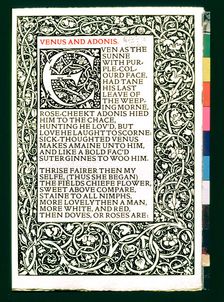 VENUS AND ADONIS.
EVEN AS THE
SUNNE
WITH PUR-
PLE-COL-
OURD FACE,
HAD TANE
HIS LAST
LEAVE OF
THE WEEP-
ING MORNE,
ROSE-CHEEKT ADONIS HIED
HIM TO THE CHACE,
HUNTING HE LOV'D BUT
LOVE HE LAUGHT TO SCORNE:
SICK-THOUGHTED VENUS
MAKES AMAINE UNTO HIM,
AND LIKE A BOLD FAC'D
SUTER GINNES TO WOO HIM.
THRISE FAIRER THEN MY
SELFE, (THUS SHE BEGAN)
THE FIELDS CHIEFE FLOWER,
SWEET ABOVE COMPARE,
STAINE TO ALL NIMPHS,
MORE LOVELY THEN A MAN,
MORE WHITE, AND RED,
THEN DOVES, OR ROSES ARE: